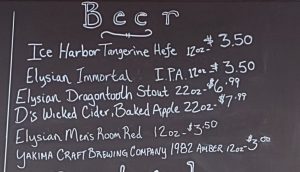 Beer
Ice Harbor Tangerine Hefe 12oz - $3.50
Elysian Immortal I.P.A. 12oz - $3.50
Elysian Dragontooth Stout 22oz - $6.99
D's Wicked Cider, Baked Apple 22oz - $7.99
Elysian Men's Room Red 12oz - $3.50
Yakima Craft Brewing Company 1982 Amber 12oz - $3.00